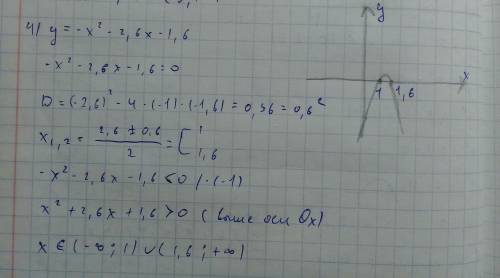 4) y = -x² - 2,6x - 1,6
-x² - 2,6x - 1,6 = 0
D = (-2,6)² - 4 · (-1) · (-1,6) = 0,36 = 0,6²
x₁,₂ = (2,6 ± 0,6)/2 = [ 1
1,6
-x² - 2,6x - 1,6 < 0 / · (-1)
x² + 2,6x + 1,6 > 0 (выше оси Ox)
x ∈ (-∞; 1) ∪ (1,6; +∞)
y
x
1
1,6